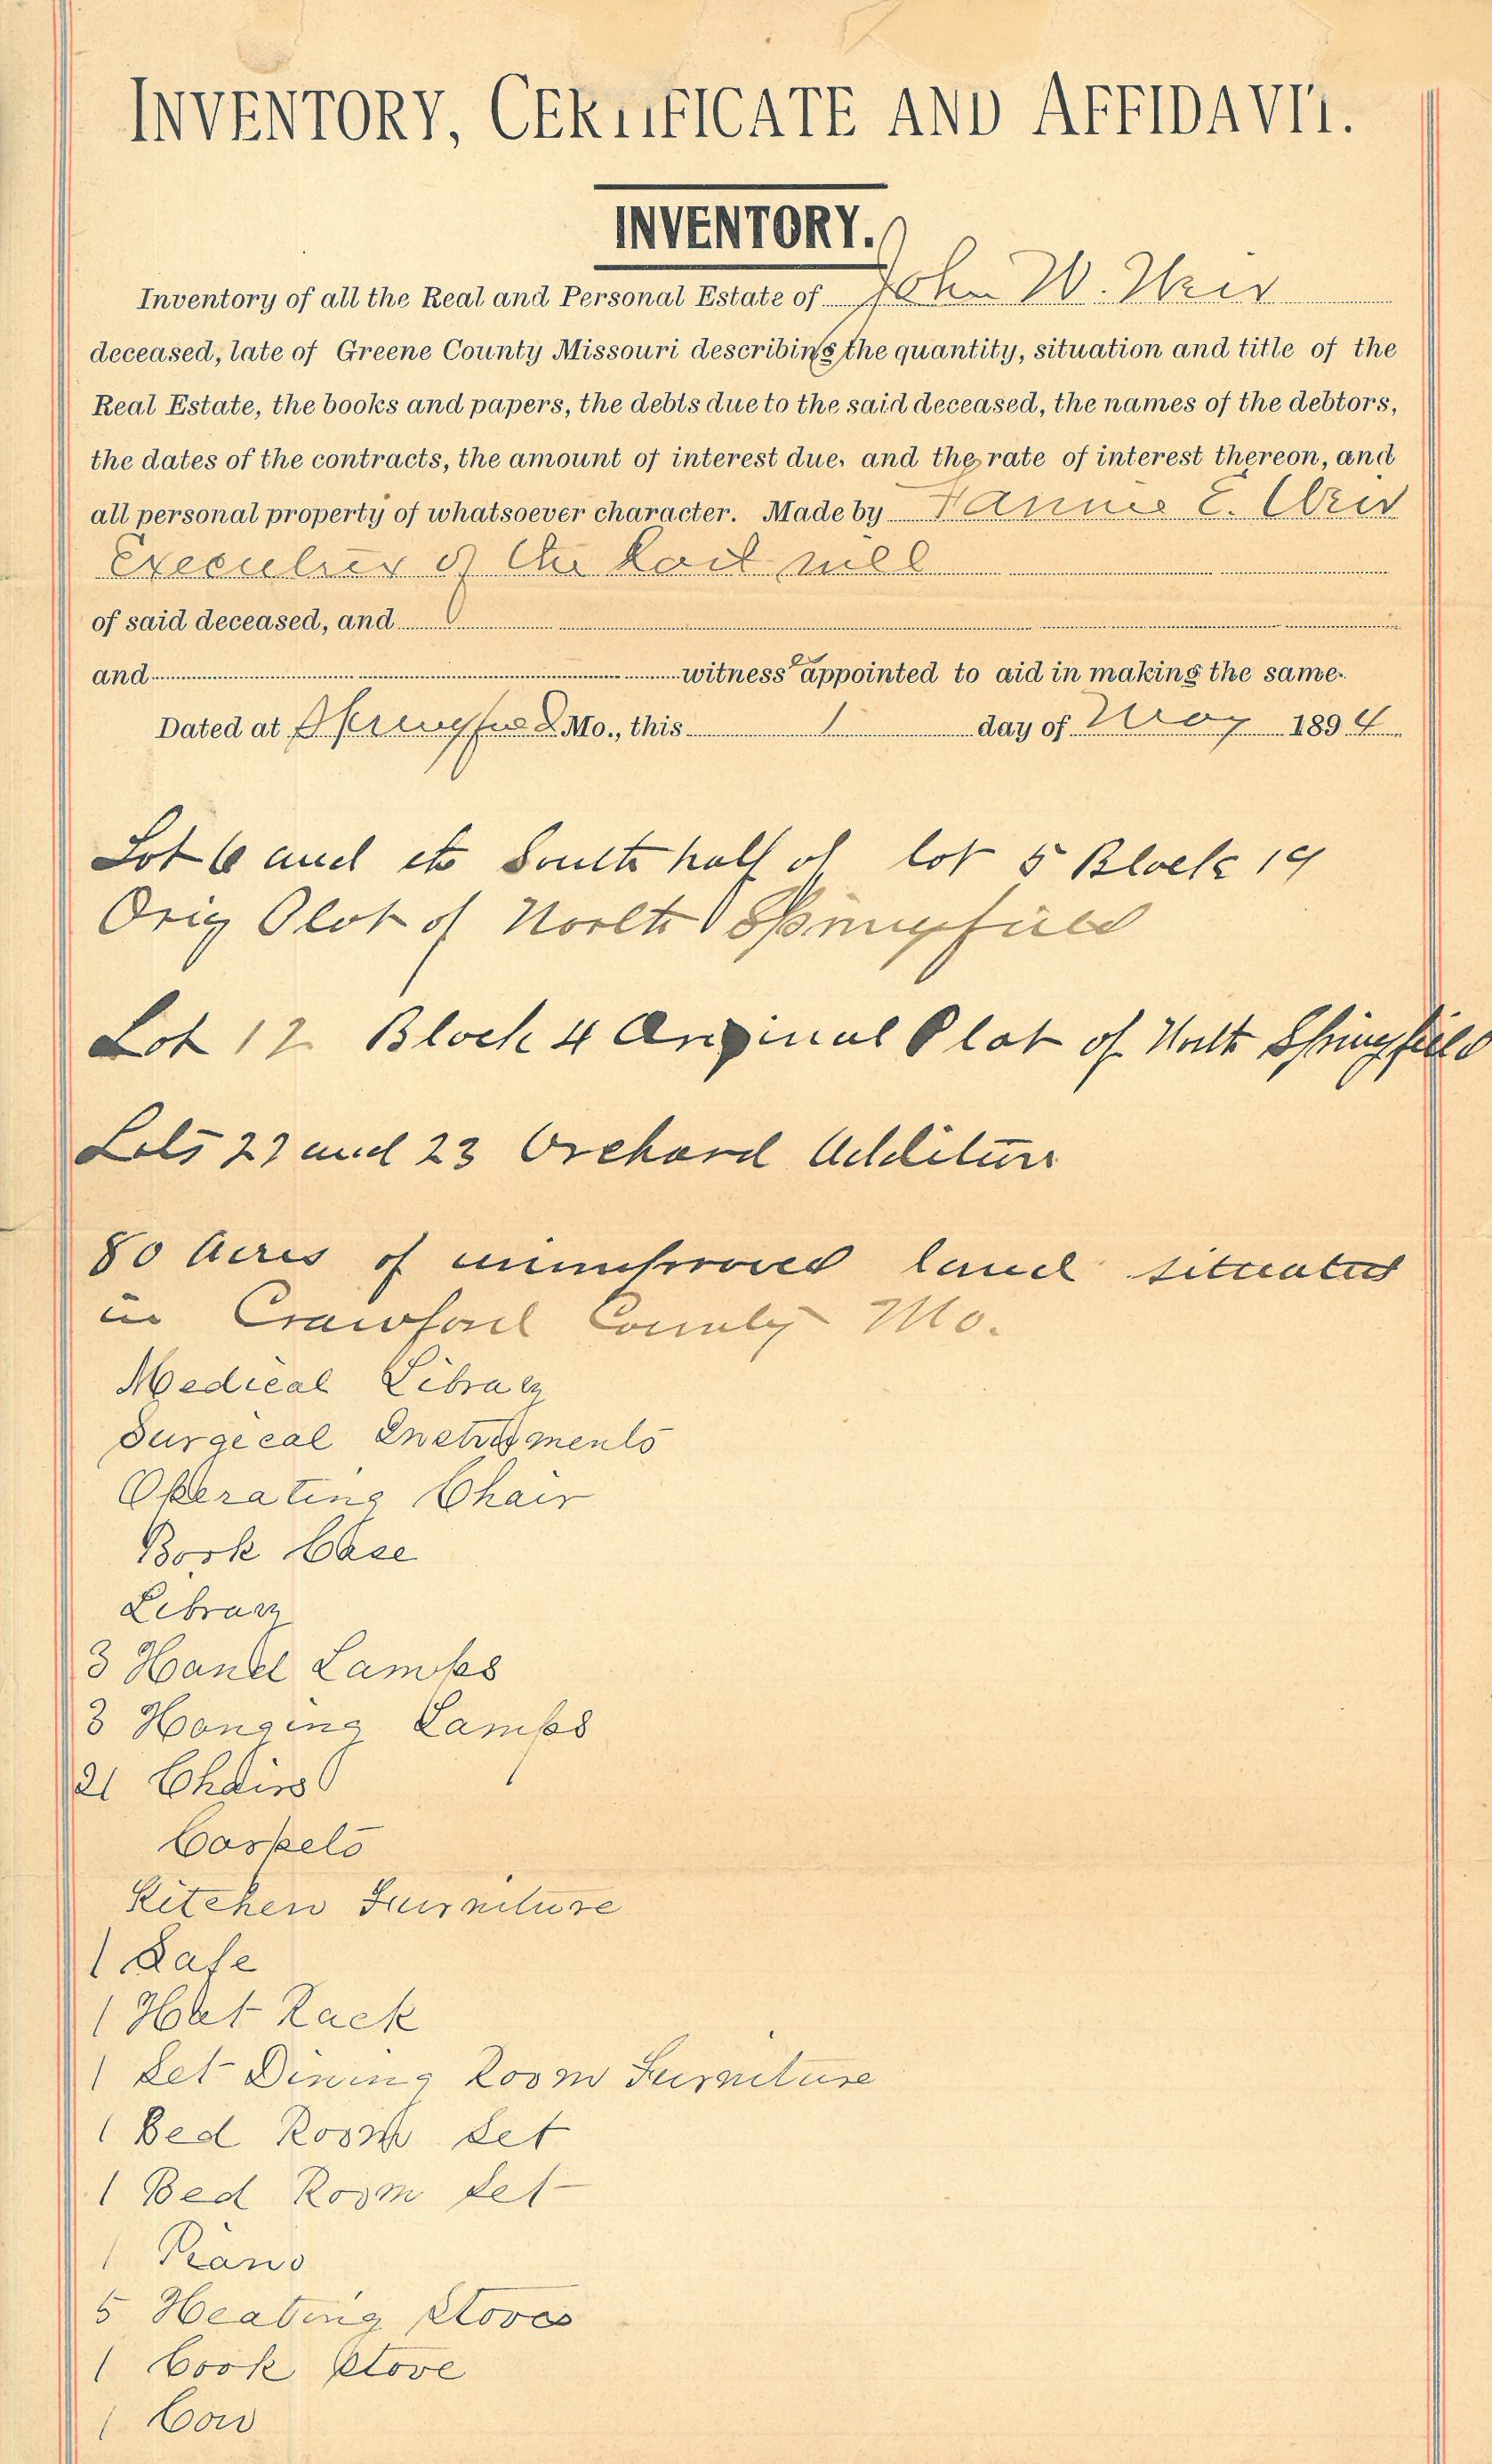 INVENTORY, CERTIFICATE AND AFFIDAVIT.
INVENTORY.
Inventory of all the Real and Personal Estate of John W. Weir
deceased, late of Greene County Missouri describing the quantity, situation and title of the
Real Estate, the books and papers, the debts due to the said deceased, the names of the debtors,
the dates of the contracts, the amount of interest due, and the rate of interest thereon, and
all personal property of whatsoever character. Made by Fannie E. Weir
Executrix of the Last will
of said deceased, and
and witness appointed to aid in making the same.
Dated at Springfield Mo., this 1 day of May 1894
Lot 6 and South half of lot 5 Block 19
Orig Plot of North Springfield
Lot 12 Block 4 Original Plat of North Springfield
Lots 22 and 23 Orchard Addition
80 Acres of unimproved land situated
in Crawford County Mo.
Medical Library
Surgical Instruments
Operating Chair
Book Case
Library
3 Hand Lamps
3 Hanging Lamps
21 Chairs
Carpets
Kitchen Furniture
1 Safe
1 Hat Rack
1 Set Dining Room Furniture
1 Bed Room Set
1 Bed Room Set
1 Piano
5 Heating Stoves
1 Cook Stove
1 Cow